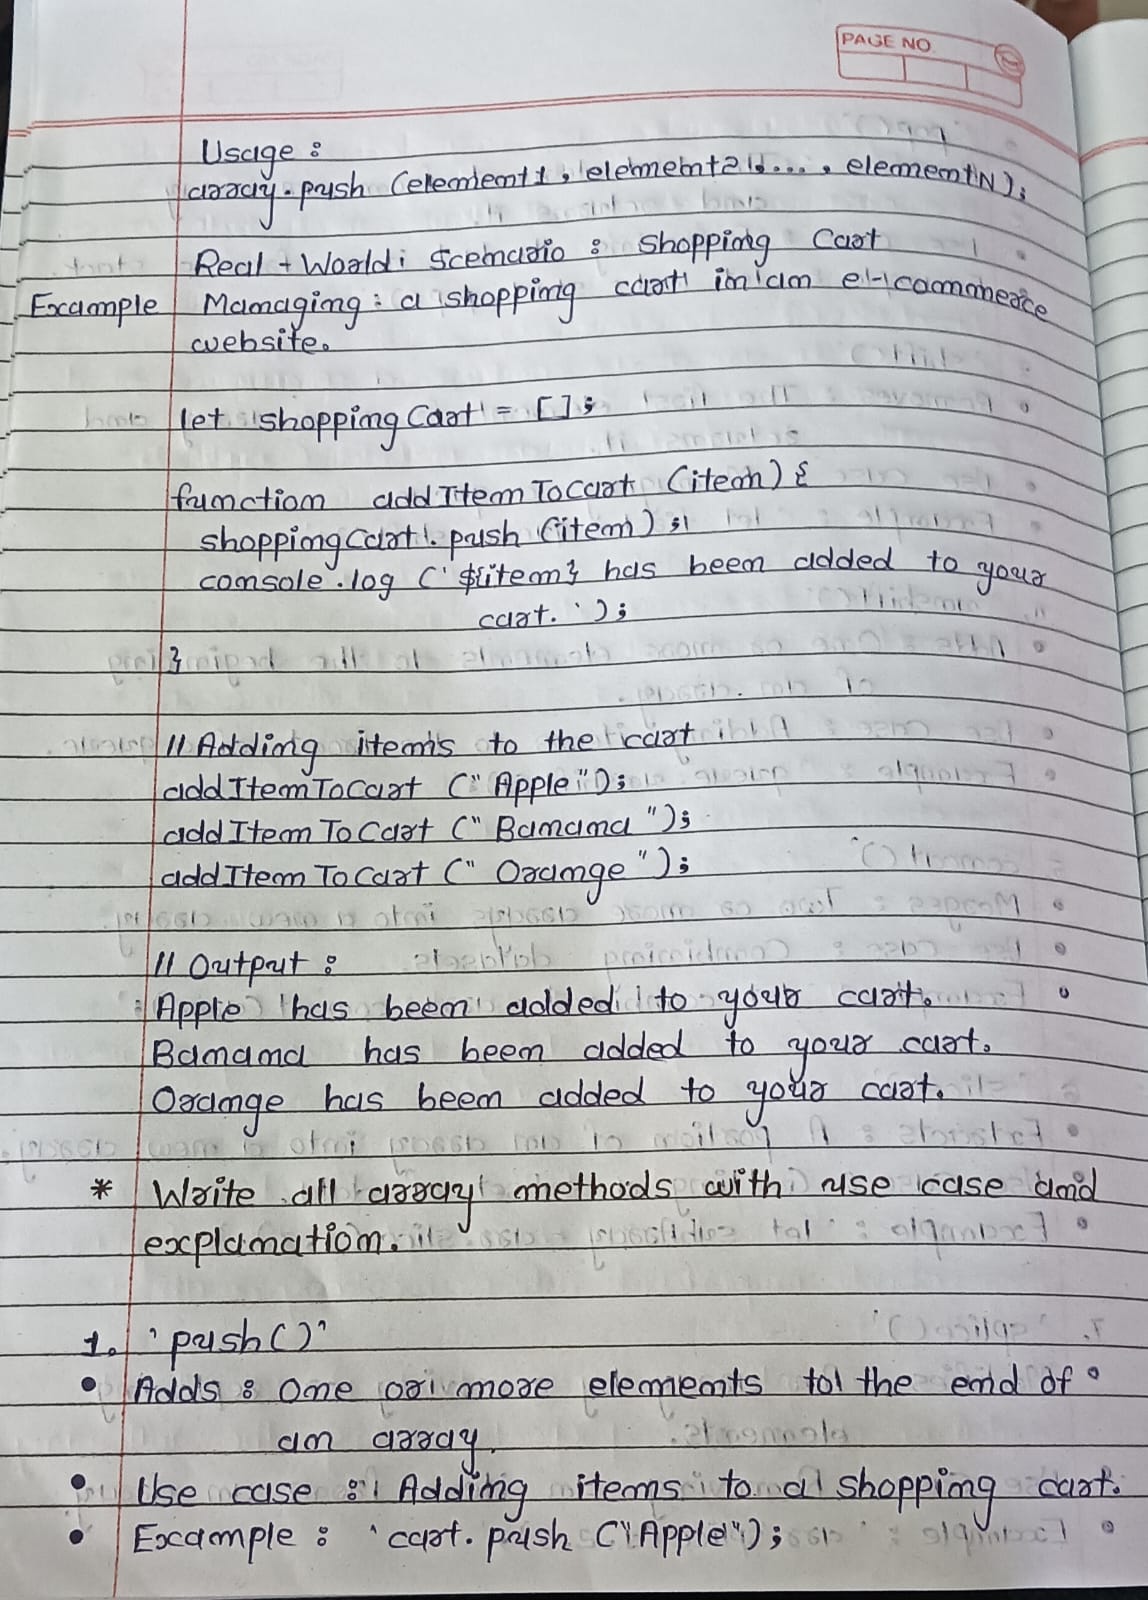 PAGE NO.
Usage :
array.push (element1, element2, ..., elementN);
Real-World Scenario : Shopping Cart
Example Managing a shopping cart in an e-commerce
website.
let shoppingCart = [];
function addItemToCart (item) {
shoppingCart.push (item);
console.log (`${item} has been added to your
cart.`);
}
// Adding items to the cart
addItemToCart ("Apple");
addItemToCart ("Banana");
addItemToCart ("Orange");
// Output :
Apple has been added to your cart.
Banana has been added to your cart.
Orange has been added to your cart.
* Write all array methods with use case and
explanation.
1. `push()`
• Adds : One or more elements to the end of
an array.
• Use case : Adding items to a shopping cart.
• Example : `cart.push ("Apple");